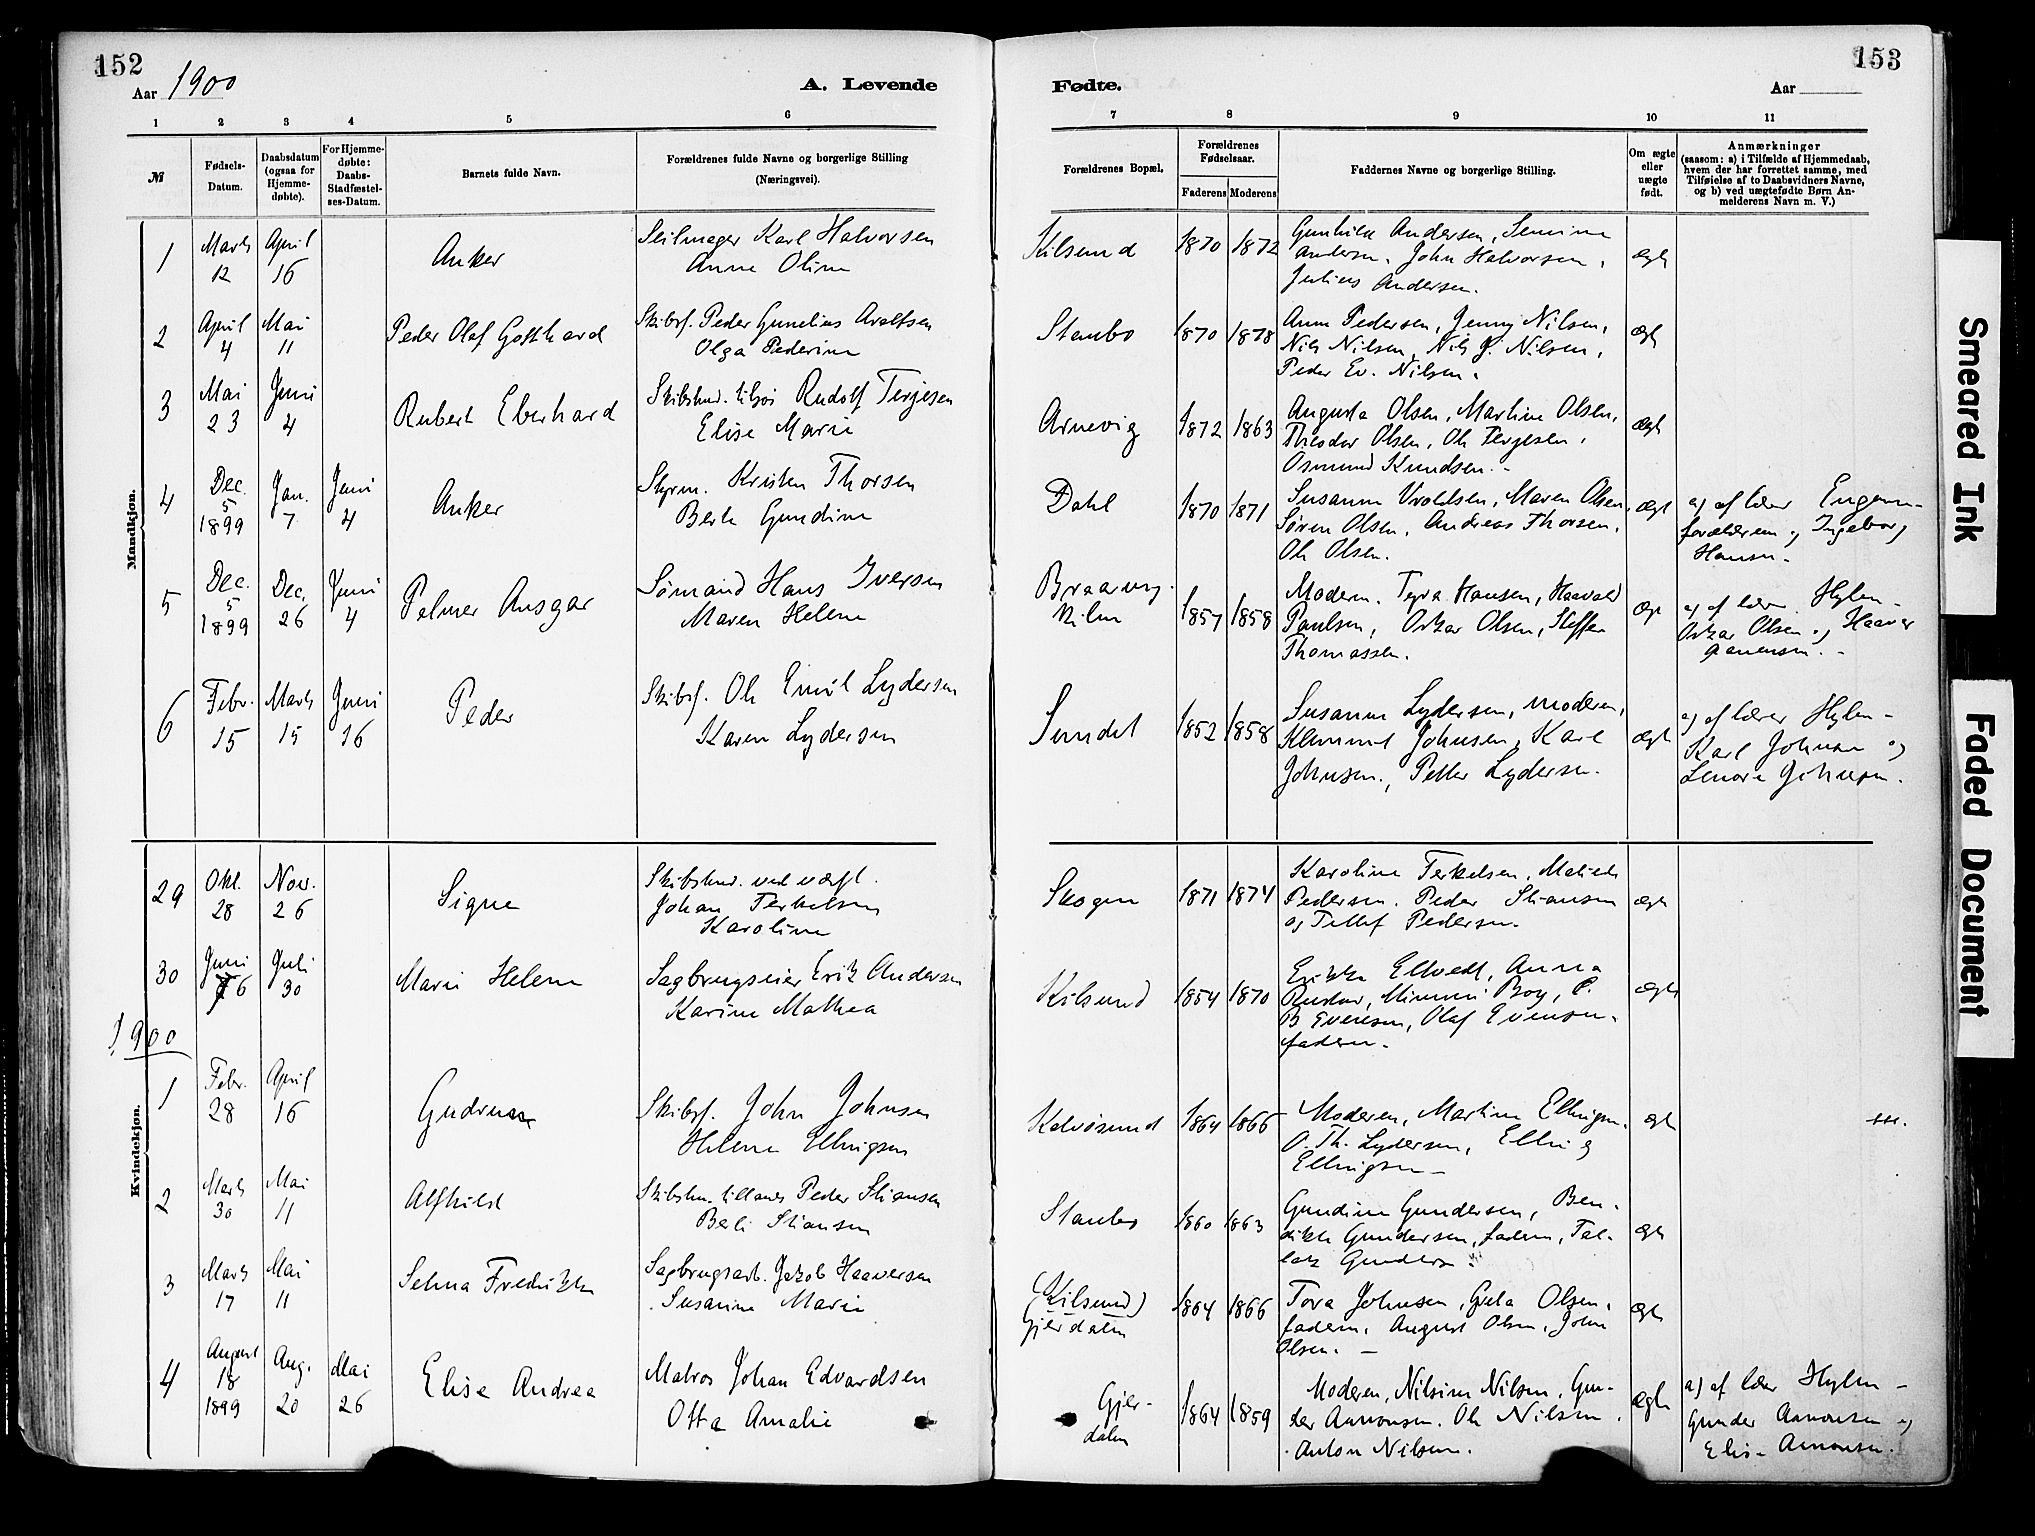 152
Aar 1900
A. Levende
1 2 3 4 5 6
№
Fødsels-
Datum.
Daabsdatum
(ogsaa for
Hjemme-
døbte).
For Hjemme-
døbte:
Daabs-
Stadfæstel-
ses-Datum.
Barnets fulde Navn.
Forældrenes fulde Navne og borgerlige Stilling
(Næringsvei).
Mandkjøn.
1 Marts 12 April 16 Anker Karl Halvorsen
Anne Oline
2 April 4 Mai 11 Peder Olaf Gotthard Skibsf. Peder Gunelius
Olga Pederine
3 Mai 23 Juni 4 Robert Eberhard Rudolf Terjesen
Elise Marie
4 Dec. 5 1899 Jan. 7 Juni 4 Anker Styrm. Kristen Thorsen
Berte Gundine
5 Dec. 5 1899 Dec. 26 Juni 4 Palmer Ansgar Sømand Hans Iversen
Maren Helene
6 Febr. 15 Marts 15 Juni 16 Peder Skibsf. Ole Emil Lydersen
Karen Lydersen
29 Okt. 28 Nov. 26 Signe Skibstmd. ved væft.
Johan Terkelsen
Karoline
30 Juni 6 Juli 30 Marie Helene Sagbrugseier Erik Andersen
Karine Mathea
1900
Kvindekjøn.
1 Febr. 28 April 16 Gudrun Skibsf. John Johnsen
Helene Ellingsen
2 Marts 30 Mai 11 Alfhild Peder Stiansen
Berte Stiansen
3 Marts 17 Mai 11 Selma Fredrikke Sagbrugsarb. Jakob Haaversen
Susanne Marie
4 August 18 1899 Aug. 20 Mai 26 Elise Andrea Matros Johan Edvardsen
Otta Amalie
153
Fødte.
Aar
7 8 9 10 11
Forældrenes Bopæl.
Forældrenes
Fødselsaar.
Faderens Moderens
Faddernes Navne og borgerlige Stilling.
Om ægte
eller
uægte
født.
Anmærkninger
(saasom: a) i Tilfælde af Hjemmedaab,
hvem der har forrettet samme, med
Tilføielse af to Daabsvidners Navne,
og b) ved uægtefødte Børn An-
melderens Navn m. V.)
Kilsund 1870 1872 Gunhild Andersen,
Andersen, John Halvorsen,
Julius Andersen.
ægte
Staubo 1870 1878 Anne Pedersen, Jenny Nilsen,
Nils Nilsen, Nils J. Nilsen,
Peder Ev. Nilsen.
ægte
Arnevig 1872 1863 Augusta Olsen, Martine Olsen,
Theodor Olsen, Ole Terjesen,
Osmund Knudsen.
ægte
Dahl 1870 1871 Susanne Vroldsen, Maren Olsen,
Søren Olsen, Andreas Thorsen,
Ole Olsen.
ægte
a) af lærer
forældrene og Ingeborg
Hansen.
1857 1858 Modern. Hansen, Haavald
Paulsen, Oskar Olsen, Steffen
Thomassen.
ægte
a) af lærer Hylen-
Oskar Olsen og Haaver
Sundet 1852 1858 Susanne Lydersen, moderen,
Klemmet Johnsen, Karl
Johnsen, Petter Lydersen.
ægte
a) af lærer Hylen-
Karl Johnsen og
Lenore Johnsen.
Skogen 1871 1874 Karoline Terkelsen,
Pedersen. Peder Stiansen
og Tellef Pedersen.
ægte
Kilsund 1854 1870 Anna
Minni Boy, C.
Olaf Evensen.
faderen.
ægte
1864 1866 Moderen, Martine Ellingsen,
O. Th. Lydersen,
Ellingsen
ægte
Staubo 1860 1863 Gundine Gundersen, Ben-
dikte Gundersen, faderen, Tal-
lak
ægte
(Kilsund)
Gjerdalen
1864 1866 Tora Johnsen, Olsen,
faderen, August Olsen, John
Olsen.
ægte
Gjer-
dalen
1864 1859 Moderen, Nilsine Nilsen, Gun-
der Aanonsen. Ole Nilsen.
Anton Nilsen.
ægte
a) af lærer Hylen-
Gunder Aanonsen og
Elis- Aanonsen.
Smeared Ink
Faded Document